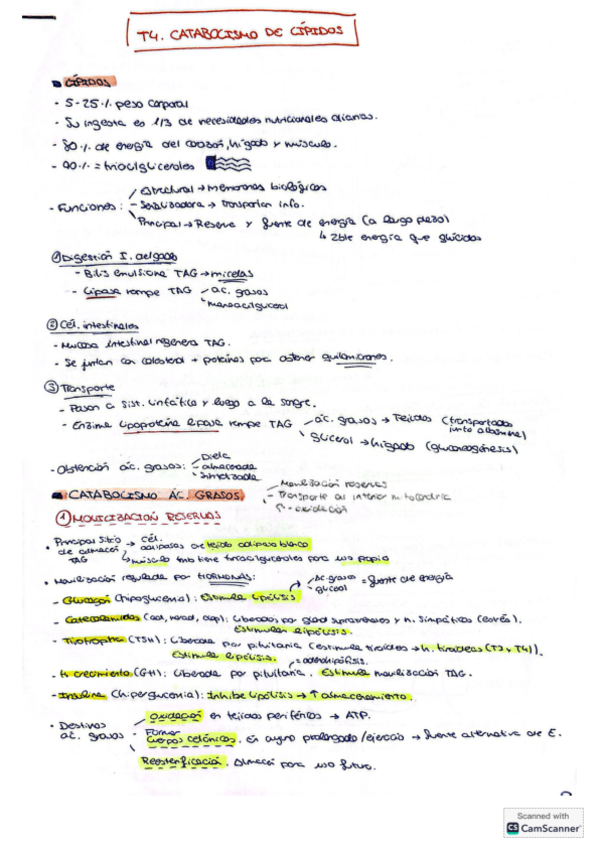 T4. CATABOLISMO DE LÍPIDOS
LÍPIDOS
- 5-25% peso corporal
- Su ingesta es 1/3 de necesidades nutricionales diarias.
- 80% de energía del corazón, hígado y músculo.
- 90% = triacilgliceroles
- Funciones:
Estructural → membranas biológicas
Señalizadora → transportan info.
Principal → Reserva y fuente de energía (a largo plazo)
↳ 2ble energía que glúcidos
① Digestión I. delgado
- Bilis emulsiona TAG → micelas
- Lipasa rompe TAG
ác. grasos
monoacilglicerol
② Cél. intestinales
- Mucosa intestinal regenera TAG.
- Se juntan con colesterol + proteínas para obtener quilomicrones.
③ Transporte
- Pasan a sist. linfático y luego a la sangre.
- Enzima lipoproteína lipasa rompe TAG
ác. grasos → Tejidos (transportados junto albúmina)
glicerol → hígado (gluconeogénesis)
- Obtención ác. grasos:
Dieta
almacenada
sintetizada
CATABOLISMO ÁC. GRASOS
- Movilización reservas
- Transporte al interior mitocondria
β-oxidación
① MOVILIZACIÓN RESERVAS
• Principal sitio de almacén TAG → cél. adiposas de tejido adiposo blanco
↳ músculo tmb tiene triacilgliceroles para uso propio
• Movilización regulada por HORMONAS:
Ac. grasos = fuente de energía
glicerol
- Glucagón (hipoglucemia): Estimula lipólisis
- Catecolamidas (adr, norad, dop): Liberadas por gland suprarrenales y n. simpáticos (estrés).
Estimulan lipólisis.
- Tirotropina (TSH): Liberada por pituitaria (estimula tiroides → h. tiroideas (T3 y T4)).
Estimula lipólisis.
= adenohipófisis.
- H. crecimiento (GH): Liberada por pituitaria. Estimula movilización TAG.
- Insulina (hiperglucemia): Inhibe lipólisis → ↑ almacenamiento.
• Destinos ác. grasos
Oxidación en tejidos periféricos → ATP.
Formar cuerpos cetónicos. En ayuno prolongado/ejercicio → fuente alternativa de E.
Reesterificación. Almacén para uso futuro.
Scanned with
CS CamScanner